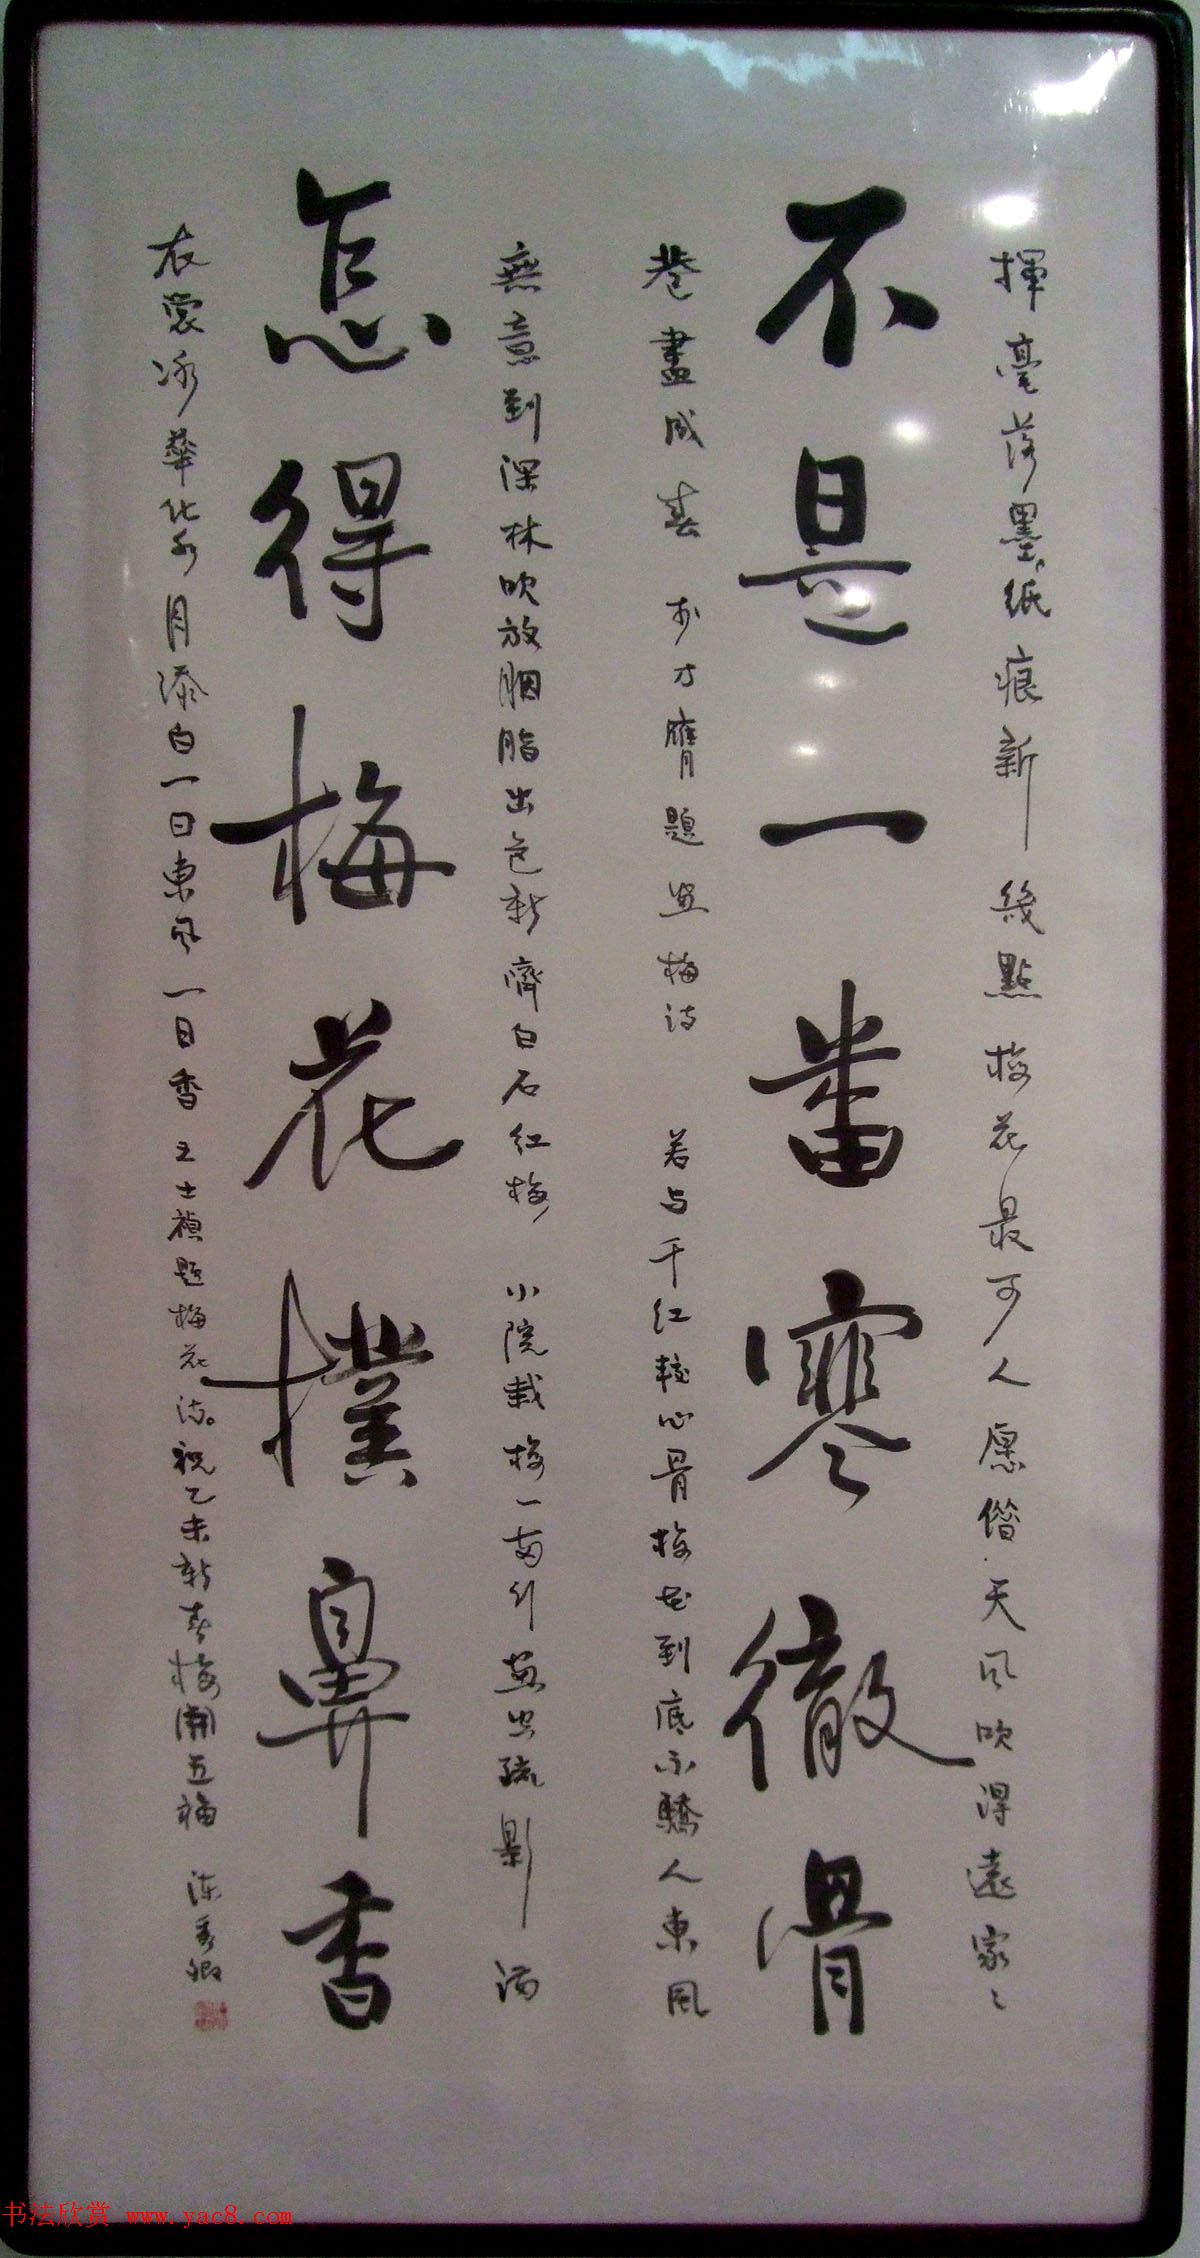 揮毫落墨紙痕新幾點梅花最可人愿偕天風吹得遠家〻
不是一番寒徹骨
巷盡成春 李方膺題畫梅詩 若与千紅較心骨梅花到底不驕人東風
無意到深林吹放胭脂出色新齊白石紅梅 小院栽梅一兩行畫出疏影滿
怎得梅花撲鼻香
衣裳冰華化水月添白一日東風一日香王士禎題梅花詩。祝乙未新春梅開五福 陈秀卿
书法欣赏 www.yac8.com